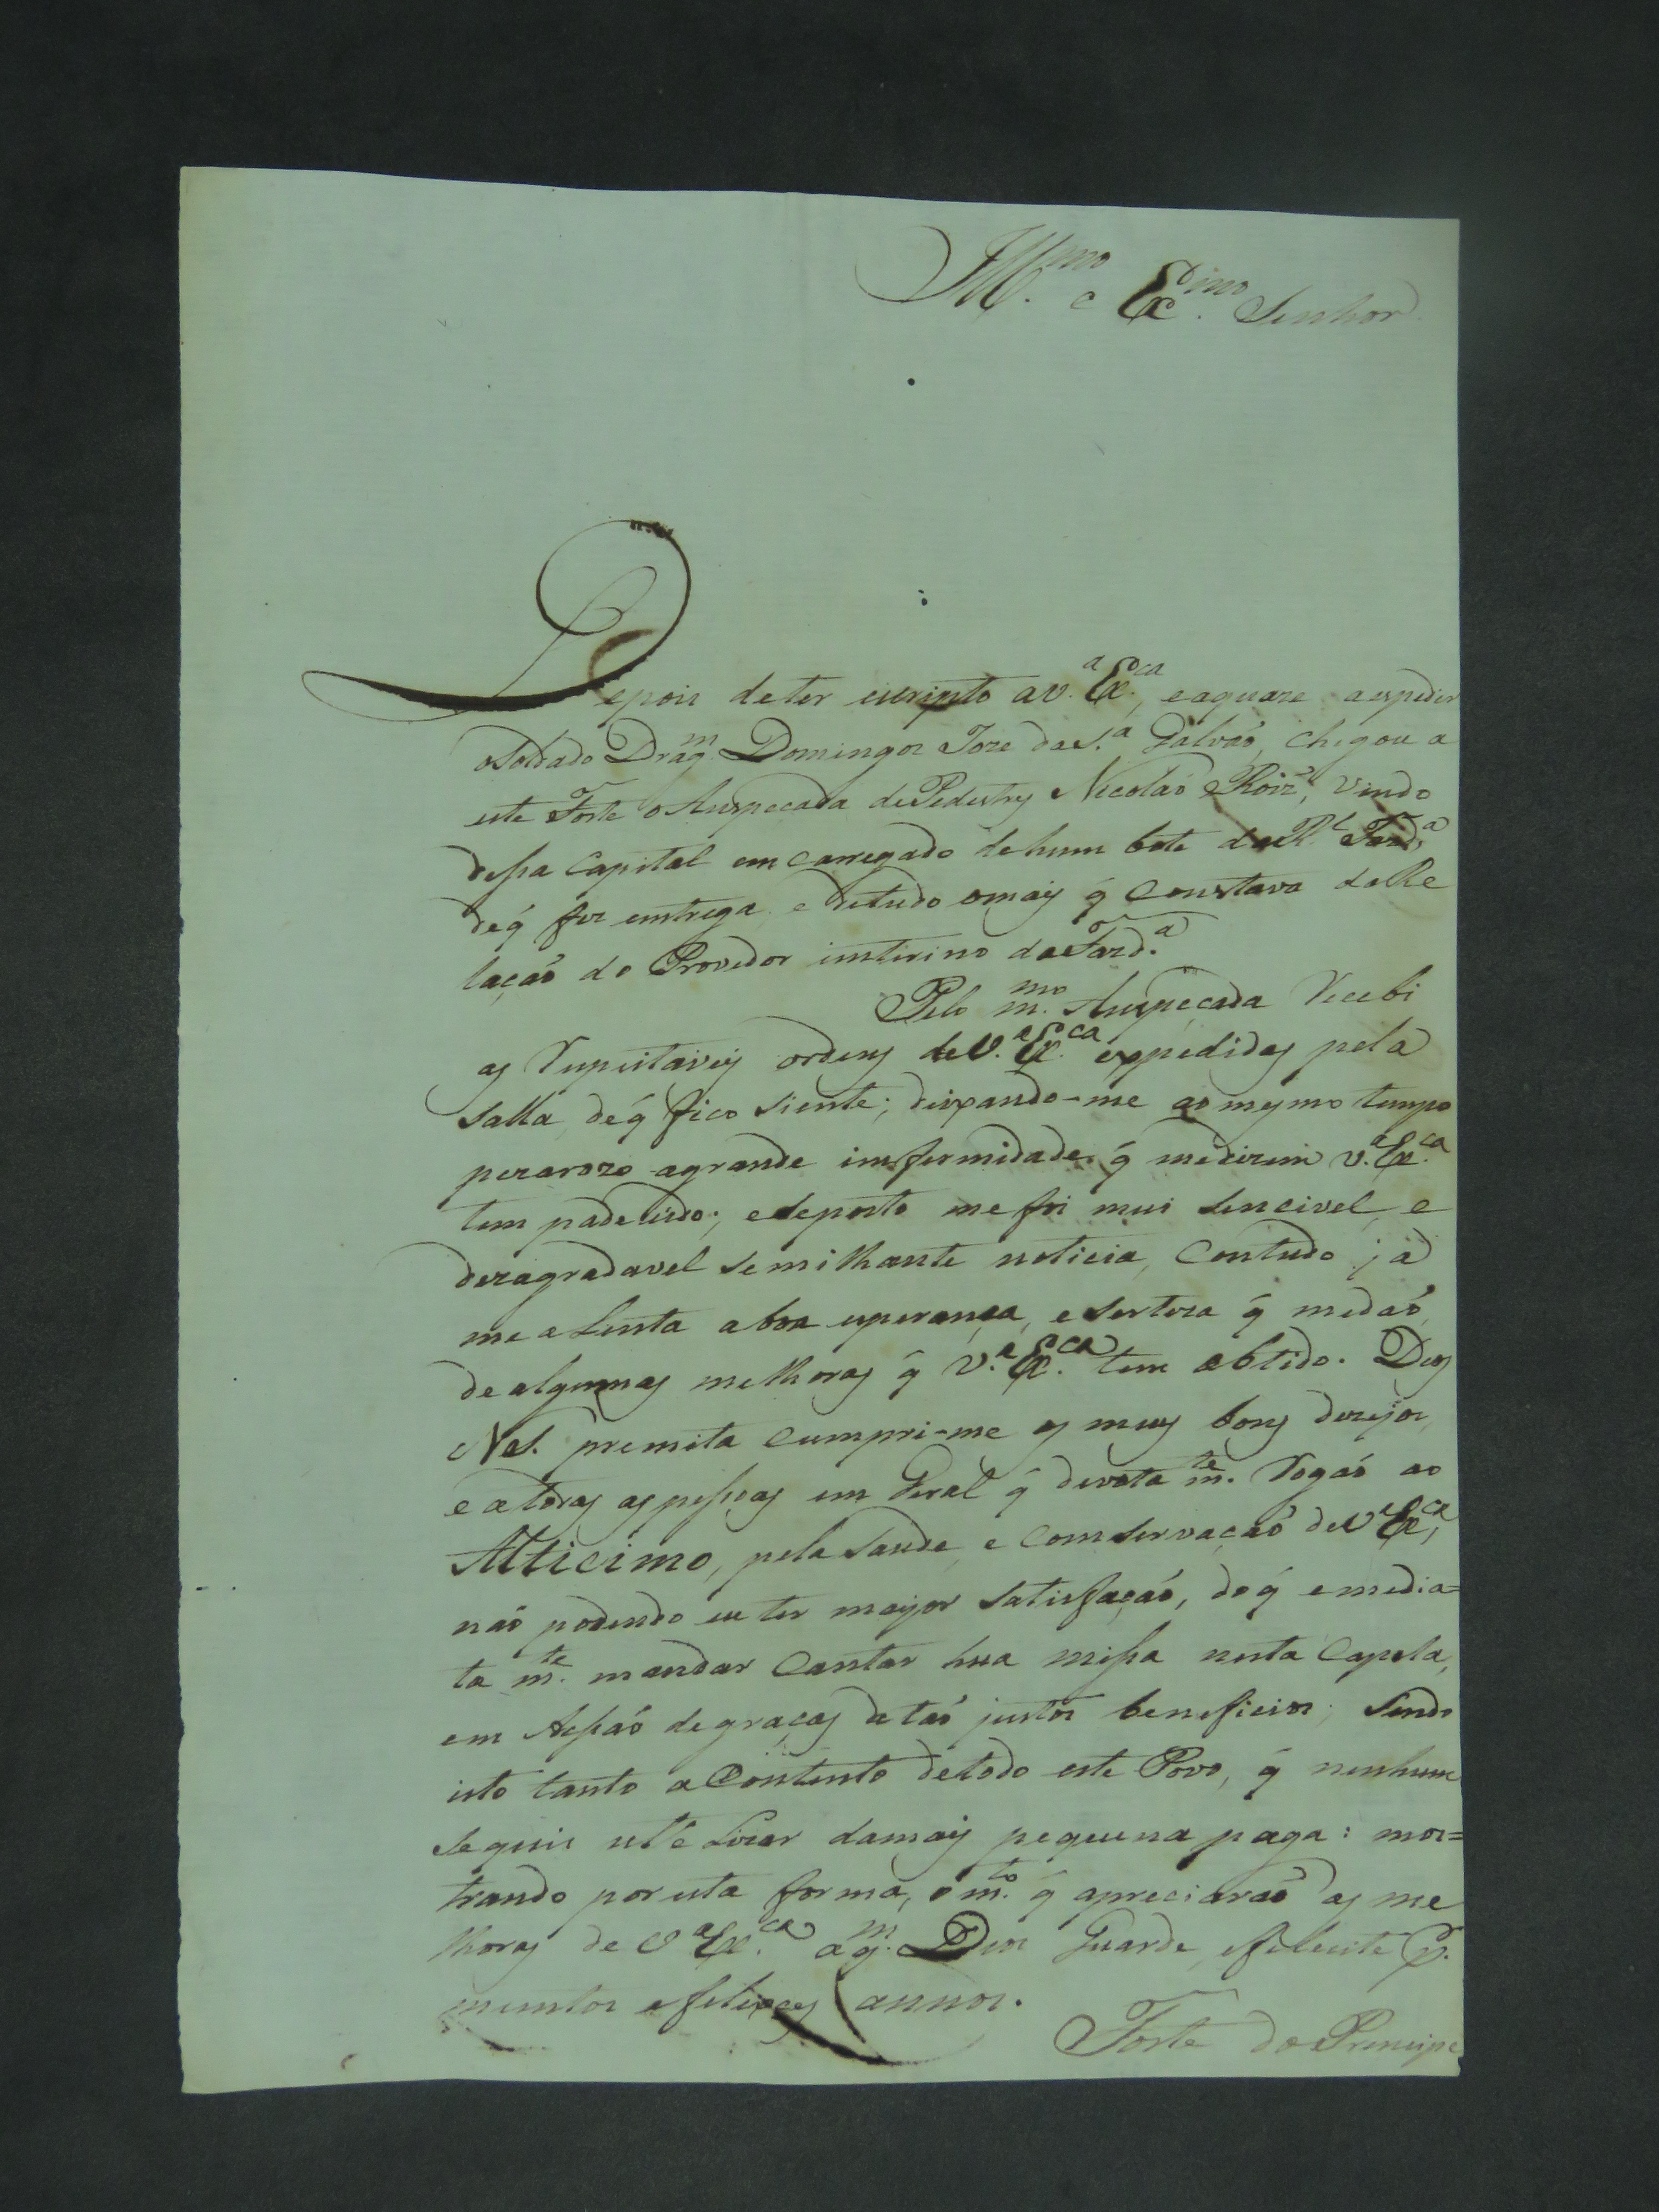 Ill.mo e Ex.mo Senhor
Depois deter escripto aV.a Ex.ca, eaquaze aespedir
oSoldado Drag.m Domingos Joze daS.a Galvaó, chegou a
este Forte o Anspecada dePedestres Nicoláo Roiz', vindo
deßa Capital emcarregado dehum bote daR.l Fazd.a
deq̃ fez emtrega, e detudo omais q̃ Constava daRe
laçaó do Provedor interino daFazd.a
Pelo m.mo Anspeçada Recebi
as Respeitaveis ordens deV.a Ex.ca expedidas pela
Salla, deq̃ fico siente; deixando-me ao mesmo tempo
pezarozo agrande imfermidade q̃ medizem V.a Ex.ca
tem padecido; edeposto me foi mui sencivel, e
dezagradavel semilhante noticia, Contudo já
me alenta aboa esperança, eserteza q̃ medaó,
de algumas melhoras q̃ V.a Ex.ca tem obtido. Deos
NoS. premita cumpri-me os meus bons dezejos,
e atodas aspeßoas em Geral q̃ devota m.te Rogaó ao
Alticimo, pela saude, e comservaçaó deV.a Ex.ca,
naó podendo eu ter mayor satisfaçaó, doq̃ emedia=
ta m.te mandar Cantar hua mißa nesta Capela,
em Acßaó degraças de taó justos beneficios; sendo
isto tanto aContento detodo este Povo, q̃ nenhum
se quis utélizar damais pequena paga: mos=
trando por esta forma, o m.to q̃ apreciaraó as me
lhoras de V.a Ex.ca a q̃.m Deos Guarde, efelecite p.
muntos efelixces annos.
Forte do Principe